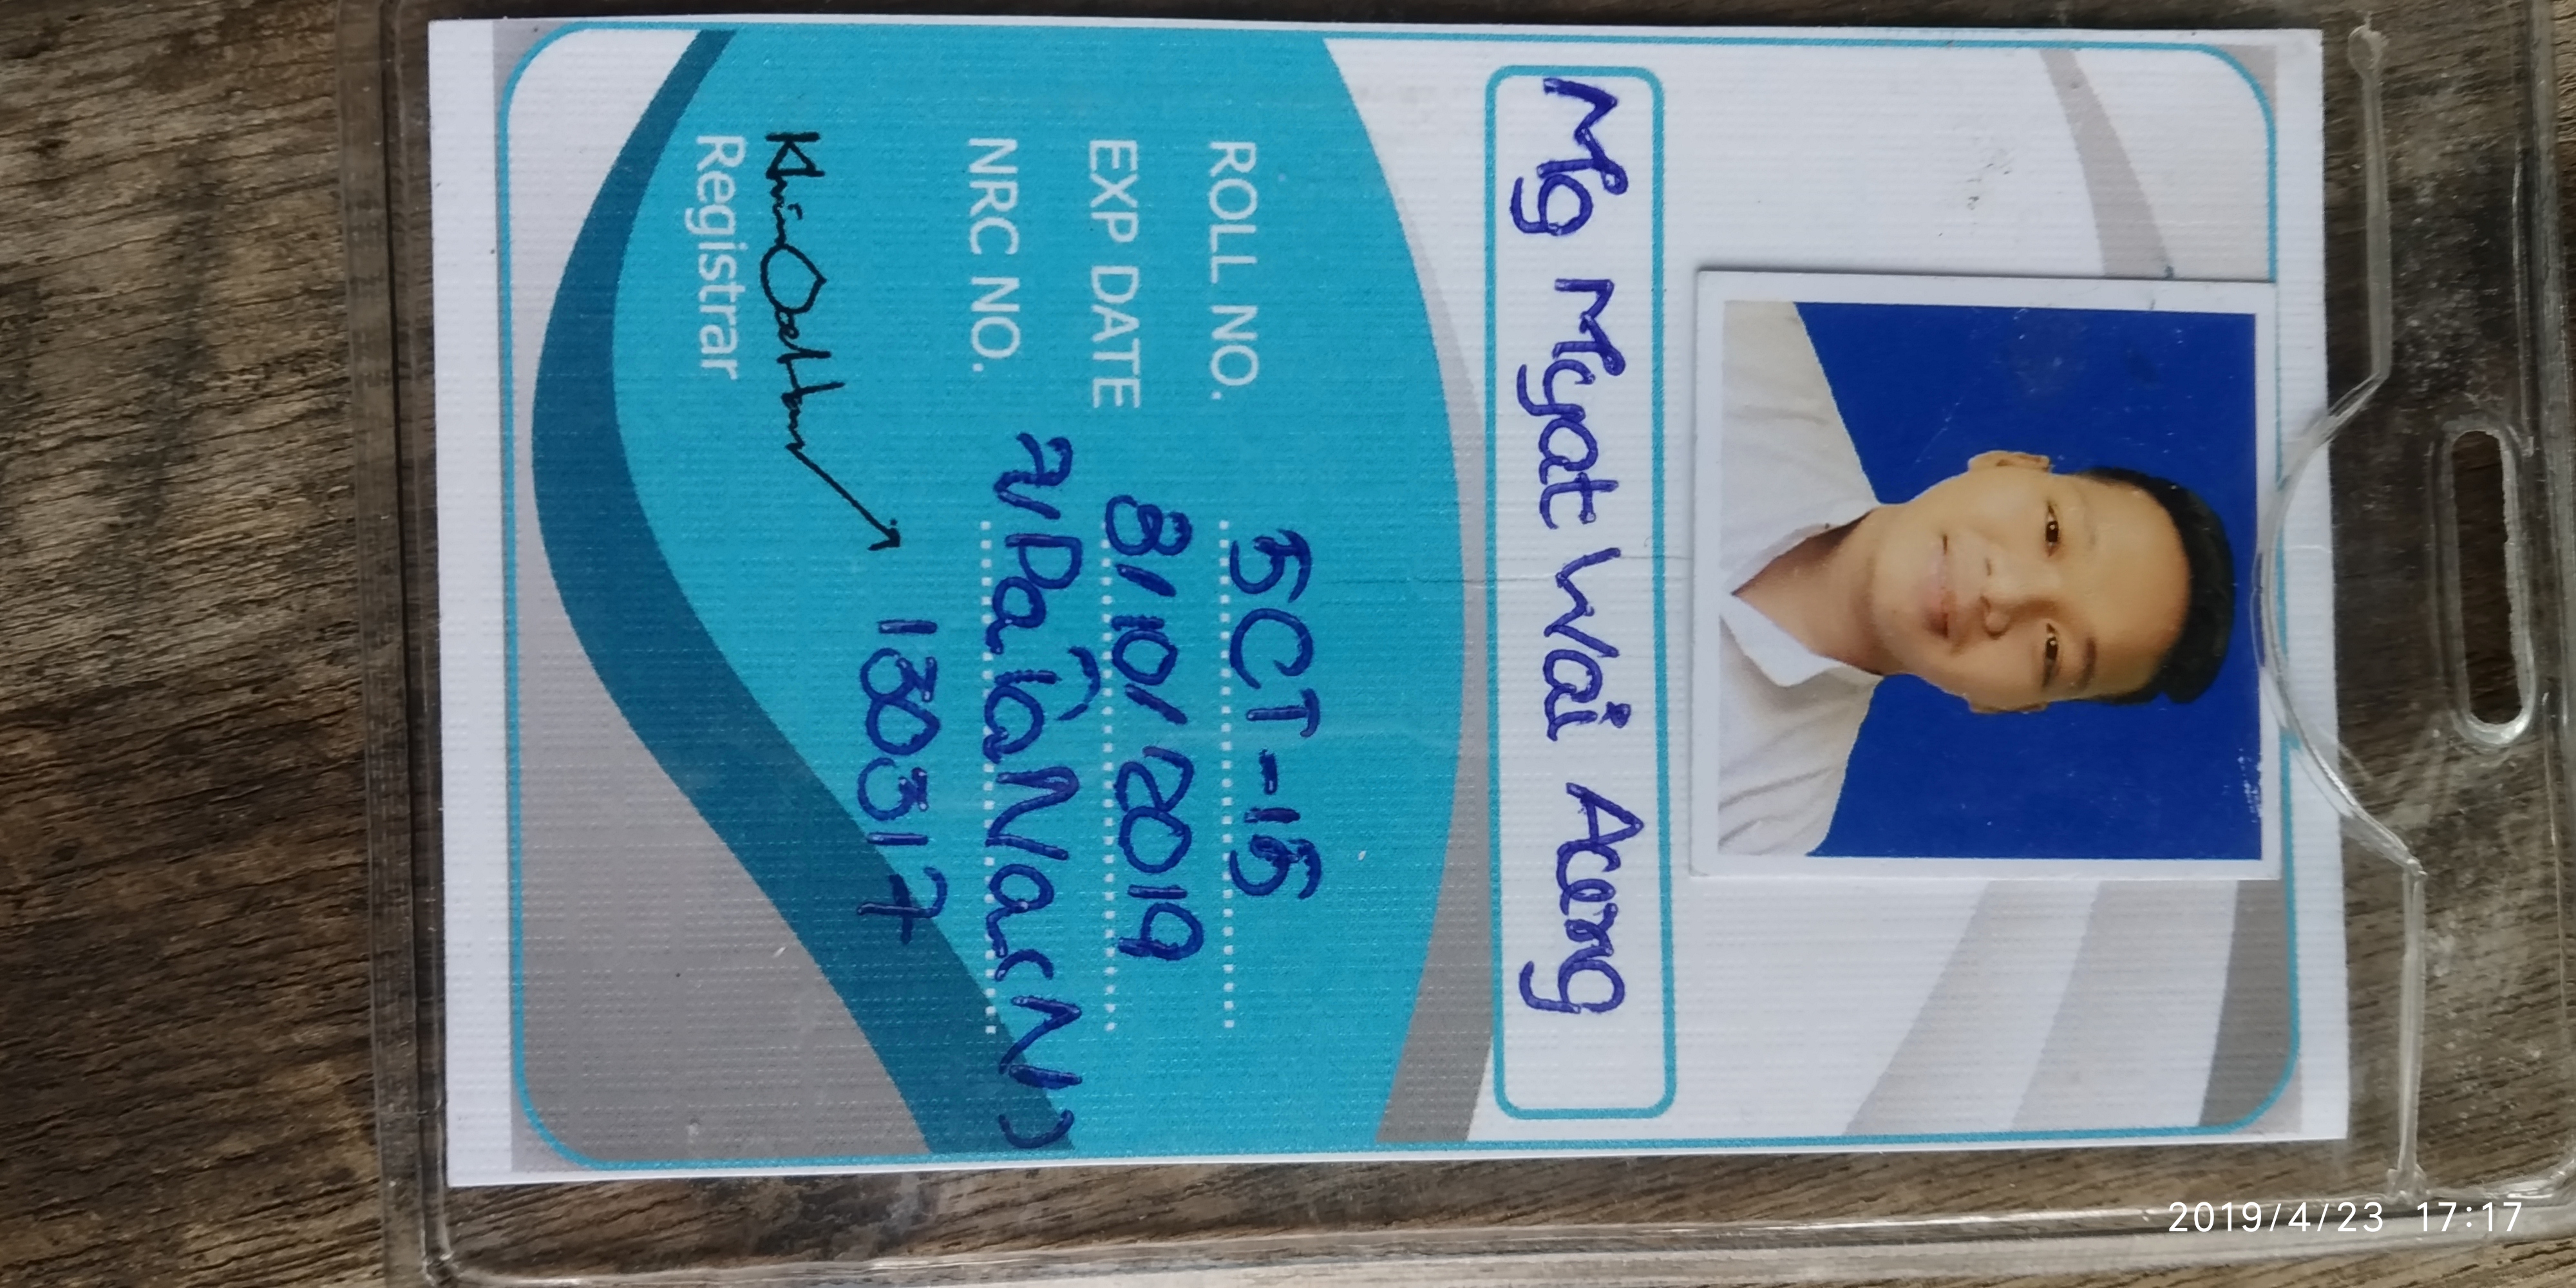 Mg Myat Wai Aung
ROLL NO. 5CT-15
EXP DATE 8/10/2019
NRC NO. 7/PaTaNa(N)
130317
Registrar
2019/4/23 17:17